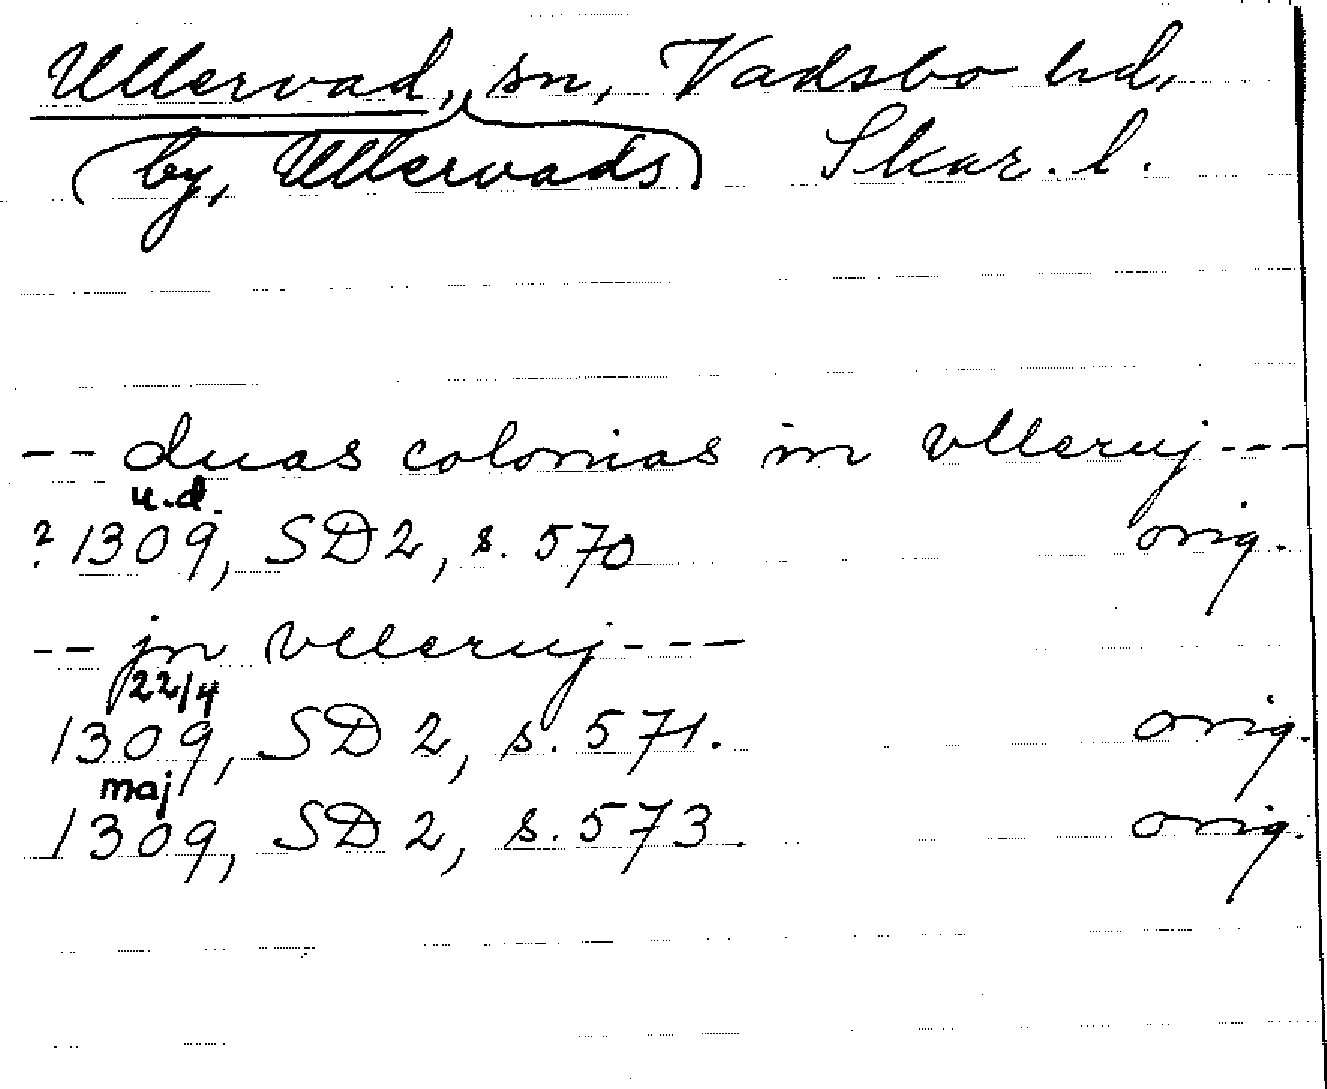 Ullervad, sn, Vadsbo hd,
(by, Ullervads) Skar. l.
-- duas colonias in vlleruj ---
u.d.
? 1309, SD 2, s. 570 orig.
-- jn vlleruj ---
22/4
1309, SD 2, s. 571. orig.
maj
1309, SD 2, s. 573. orig.